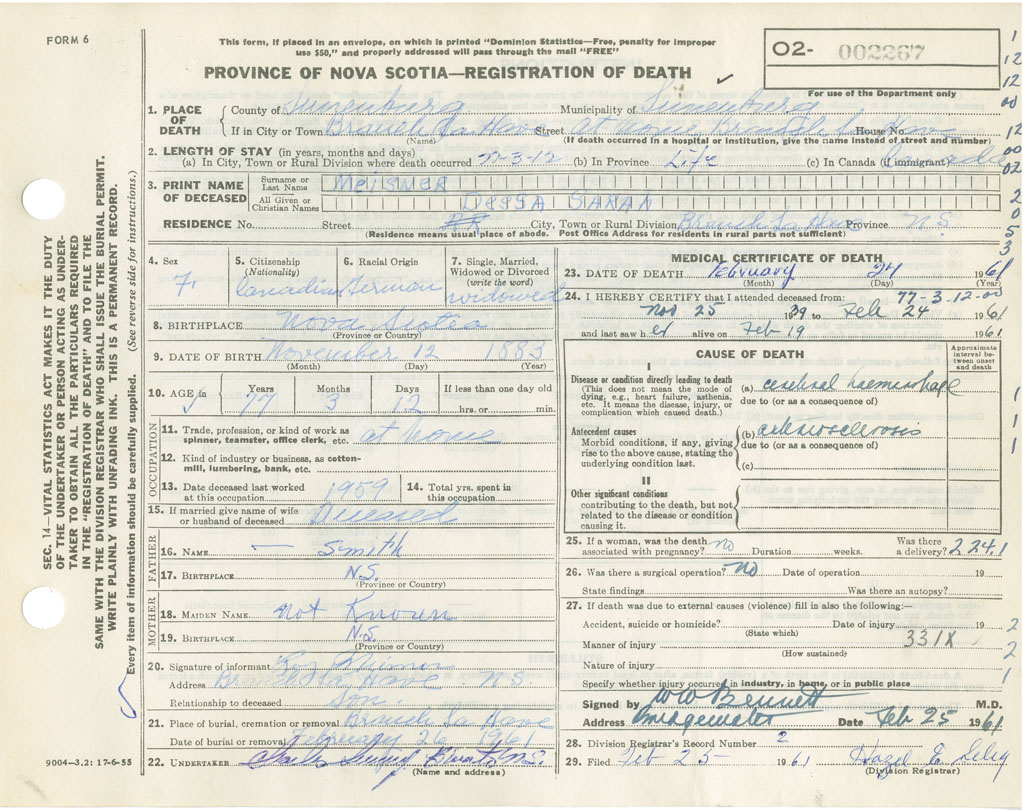 FORM 6
This form, if placed in an envelope, on which is printed "Dominion Statistics—Free, penalty for improper
use $50," and properly addressed will pass through the mail "FREE"
02- 002267
For use of the Department only
PROVINCE OF NOVA SCOTIA—REGISTRATION OF DEATH
1. PLACE OF DEATH
County of Lunenburg Municipality of Lunenburg
If in City or Town Branch La Have Street at home Branch La Have House No.
(Name) (If death occurred in a hospital or institution, give the name instead of street and number)
2. LENGTH OF STAY (in years, months and days)
(a) In City, Town or Rural Division where death occurred 77-3-12 (b) In Province Life (c) In Canada (if immigrant)
3. PRINT NAME OF DECEASED
Surname or Last Name MEISNER
All Given or Christian Names DESSA SARAH
RESIDENCE No. Street RR City, Town or Rural Division Branch La Have Province N.S.
(Residence means usual place of abode. Post Office Address for residents in rural parts not sufficient)
4. Sex F.
5. Citizenship (Nationality) Canadian
6. Racial Origin German
7. Single, Married, Widowed or Divorced (write the word) widowed
8. BIRTHPLACE Nova Scotia
(Province or Country)
9. DATE OF BIRTH November 12 1883
(Month) (Day) (Year)
10. AGE in Years 77 Months 3 Days 12 If less than one day old hrs. or min.
OCCUPATION
11. Trade, profession, or kind of work as spinner, teamster, office clerk, etc. at home
12. Kind of industry or business, as cotton-mill, lumbering, bank, etc.
13. Date deceased last worked at this occupation 1959
14. Total yrs. spent in this occupation
15. If married give name of wife or husband of deceased Deceased
FATHER
16. NAME — Smith
17. BIRTHPLACE N.S.
(Province or Country)
MOTHER
18. MAIDEN NAME not Known
19. BIRTHPLACE N.S.
(Province or Country)
20. Signature of informant Roy
Address Br La Have N.S.
Relationship to deceased Son
21. Place of burial, cremation or removal Branch La Have
Date of burial or removal February 26 1961
22. UNDERTAKER N.S.
(Name and address)
9004—3.2: 17-6-55
MEDICAL CERTIFICATE OF DEATH
23. DATE OF DEATH February 24 1961
(Month) (Day) (Year)
77-3-12-00
24. I HEREBY CERTIFY that I attended deceased from:
Nov 25 1939 to Feb 24 1961
and last saw her alive on Feb 19 1961
CAUSE OF DEATH
Approximate interval between onset and death
I
Disease or condition directly leading to death
(This does not mean the mode of dying, e.g., heart failure, asthenia, etc. It means the disease, injury, or complication which caused death.)
(a) cerebral haemorrhage
due to (or as a consequence of)
Antecedent causes
Morbid conditions, if any, giving rise to the above cause, stating the underlying condition last.
(b) arteriosclerosis
due to (or as a consequence of)
(c)
II
Other significant conditions
contributing to the death, but not related to the disease or condition causing it.
25. If a woman, was the death associated with pregnancy? no Duration weeks. Was there a delivery? 224.1
26. Was there a surgical operation? no Date of operation 19
State findings Was there an autopsy?
27. If death was due to external causes (violence) fill in also the following:—
Accident, suicide or homicide? Date of injury 19
(State which)
Manner of injury 331X
(How sustained)
Nature of injury
Specify whether injury occurred in industry, in home, or in public place
Signed by W W Bennett M.D.
Address Bridgewater Date Feb 25 1961
28. Division Registrar's Record Number 2
29. Filed Feb 25 - 1961 Hazel
(Division Registrar)
SEC. 14—VITAL STATISTICS ACT MAKES IT THE DUTY
OF THE UNDERTAKER OR PERSON ACTING AS UNDER-
TAKER TO OBTAIN ALL THE PARTICULARS REQUIRED
IN THE "REGISTRATION OF DEATH" AND TO FILE THE
SAME WITH THE DIVISION REGISTRAR WHO SHALL ISSUE THE BURIAL PERMIT.
WRITE PLAINLY WITH UNFADING INK. THIS IS A PERMANENT RECORD.
Every item of information should be carefully supplied. (See reverse side for instructions.)
1
12
12
00
12
00
02
2
0
5
3
1
1
1
1
2
2
1